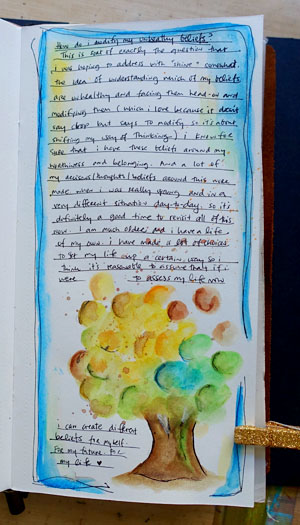 How do I modify my unhealthy beliefs?
This is sort of exactly the question that
I was hoping to address with "shine" somewhat.
the idea of understanding which of my beliefs
are unhealthy and facing them head-on and
modifying them (which I love because it doesn't
say stop but says to modify so it's about
shifting my ways of thinking.) I know for
sure that I have these beliefs around my
worthiness and belonging. And a lot of
my decisions/thoughts/beliefs around this were
made when I was really young and in a
very different situation day-to-day. so it's
definitely a good time to revisit all of this
now. I am much older and I have a life
of my own. I have made a lot of choices
to set my life up a certain way so I
think it's reasonable to assume that if I
were to assess my life now
I can create different
beliefs for myself.
for my future
my life